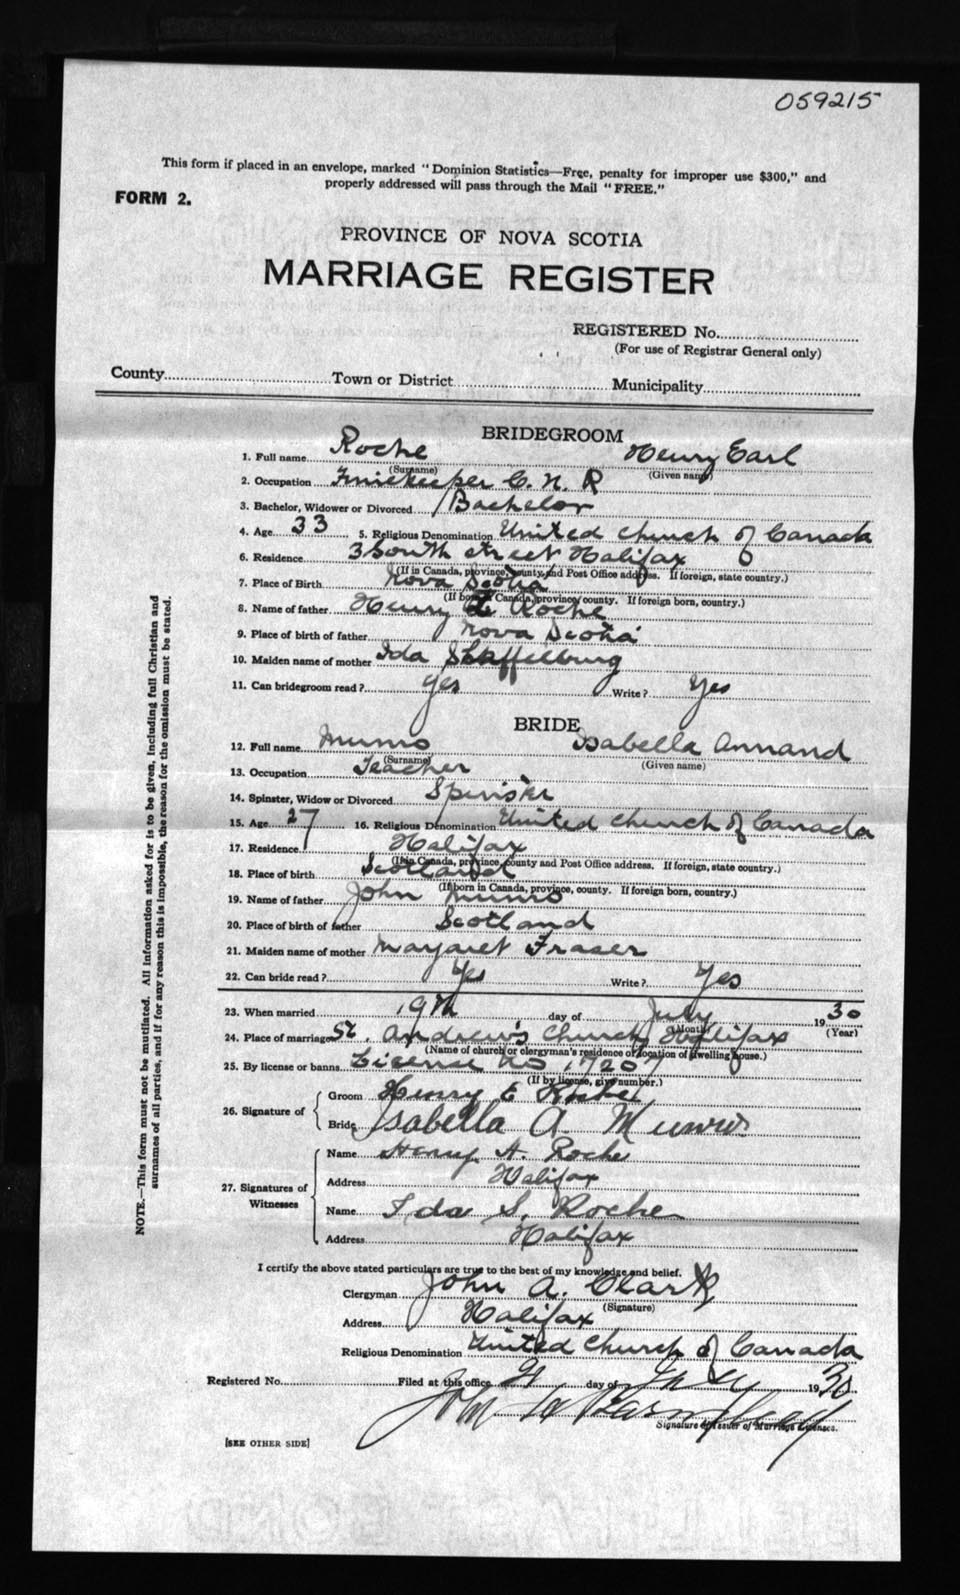 059215
This form if placed in an envelope, marked "Dominion Statistics—Free, penalty for improper use $300," and
properly addressed will pass through the Mail "FREE."
FORM 2.
PROVINCE OF NOVA SCOTIA
MARRIAGE REGISTER
REGISTERED No.
(For use of Registrar General only)
County Town or District Municipality
BRIDEGROOM
1. Full name Roche Henry Earl
(Surname) (Given name)
2. Occupation Timekeeper C. N. R
3. Bachelor, Widower or Divorced Bachelor
4. Age 33 5. Religious Denomination United Church of Canada
6. Residence 3 South Street Halifax
(If in Canada, province, county, and Post Office address. If foreign, state country.)
7. Place of Birth Nova Scotia
(If born in Canada, province, county. If foreign born, country.)
8. Name of father Henry Roche
9. Place of birth of father Nova Scotia
10. Maiden name of mother Ida Shaffelburg
11. Can bridegroom read? Yes Write? Yes
BRIDE
12. Full name Munro Isabella Annand
(Surname) (Given name)
13. Occupation Teacher
14. Spinster, Widow or Divorced Spinster
15. Age 27 16. Religious Denomination United Church of Canada
17. Residence Halifax
(If in Canada, province, county and Post Office address. If foreign, state country.)
18. Place of birth Scotland
(If born in Canada, province, county. If foreign born, country.)
19. Name of father John Munro
20. Place of birth of father Scotland
21. Maiden name of mother Margaret Fraser
22. Can bride read? Yes Write? Yes
23. When married 19th day of July 1930
(Month) (Year)
24. Place of marriage St. Andrew's Church, Halifax
(Name of church or clergyman's residence or location of dwelling house.)
25. By license or banns License No 17207
(If by license, give number.)
26. Signature of
Groom Henry E Roche
Bride Isabella A. Munro
27. Signatures of Witnesses
Name Henry A. Roche
Address Halifax
Name Ida S. Roche
Address Halifax
I certify the above stated particulars are true to the best of my knowledge and belief.
Clergyman John A. Clark
(Signature)
Address Halifax
Religious Denomination United Church of Canada
Registered No. Filed at this office 21 day of July 1930
Signature of Issuer of Marriage Licenses.
[SEE OTHER SIDE]
NOTE.—This form must not be mutilated. All information asked for is to be given, including full Christian and
surnames of all parties, and if for any reason this is impossible, the reason for the omission must be stated.